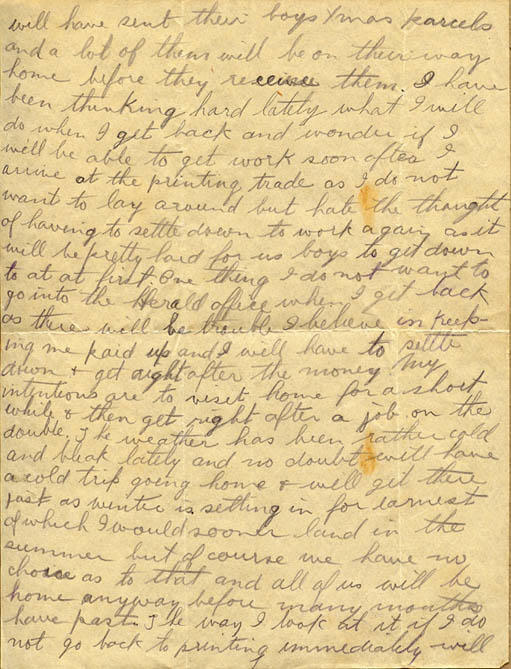 will have sent their boys Xmas parcels
and a lot of them will be on their way
home before they receive them. I have
been thinking hard lately what I will
do when I get back and wonder if I
will be able to get work soon after I
arrive at the printing trade as I do not
want to lay around but hate the thought
of having to settle down to work again as it
will be pretty hard for us boys to get down
to at at first. One thing I do not want to
go into the Herald office when I get back
as there will be trouble I believe in keep-
ing me paid up and I will have to settle
down & get right after the money. My
intentions are to visit home for a short
while & then get right after a job on the
double. The weather has been rather cold
and bleak lately and no doubt will have
a cold trip going home & will get there
just as winter is setting in for earnest
of which I would sooner land in the
summer but of course we have no
choice as to that and all of us will be
home anyway before many months
have past. The way I look at it if I do
not go back to printing immediately will